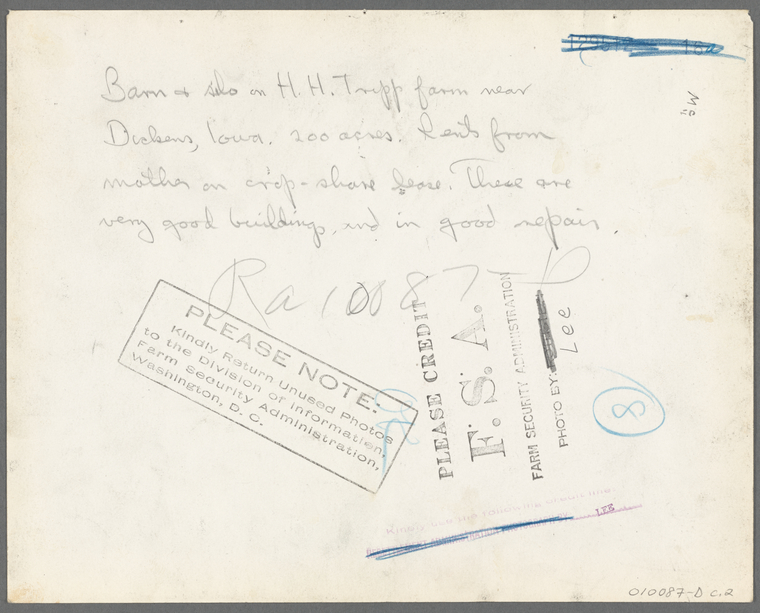 Barn & silo on H. H. Tripp farm near
Dickens, Iowa. 200 acres. Rents from
mother on crop-share lease. These are
very good buildings, and in good repair.
Ra 10087-D
PLEASE NOTE:
Kindly Return Unused Photos
to the Division of Information,
Farm Security Administration,
Washington, D. C.
PLEASE CREDIT
F. S. A.
FARM SECURITY ADMINISTRATION
PHOTO BY: Lee
8
LEE
010087-D c.2